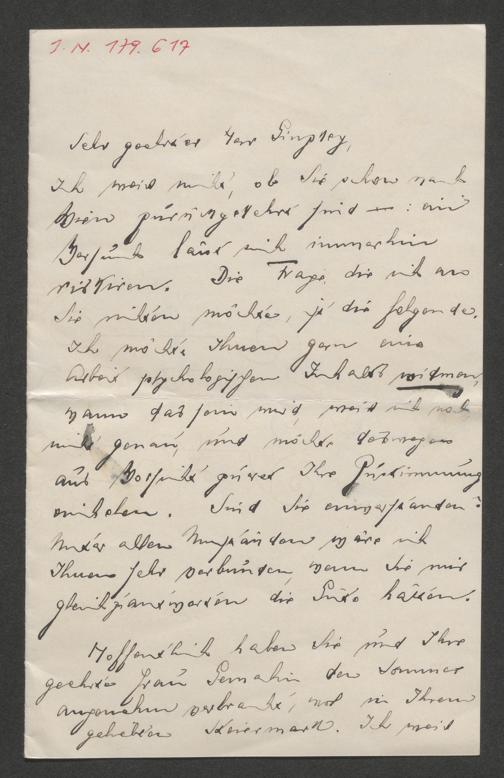 J. N. 179.617
Sehr geehrter Herr Ginzkey,
Ich weiß nicht, ob Sie schon nach
Wien zurückgekehrt sind — : ein
Versuch lässt sich immerhin
riskiren. Die Frage, die ich an
Sie richten möchte, ist die folgende.
Ich möchte Ihnen gern eine
Arbeit psychologischen Inhalts widmen,
wann das sein wird, weiß ich noch
nicht genau, und möchte deswegen
aus Vorsicht zuerst Ihre Zustimmung
einholen. Sind Sie einverstanden?
Unter allen Umständen wäre ich
Ihnen sehr verbunden wenn Sie mir
gleich zu antworten die Güte hätten.
Hoffentlich haben Sie und Ihre
geehrte Frau Gemahlin den Sommer
angenehm verbracht, wol in Ihrem
geliebten Steiermark. Ich weiß